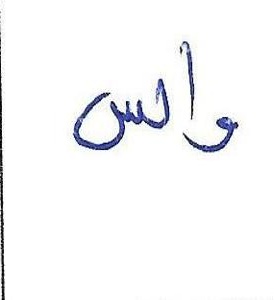 والس